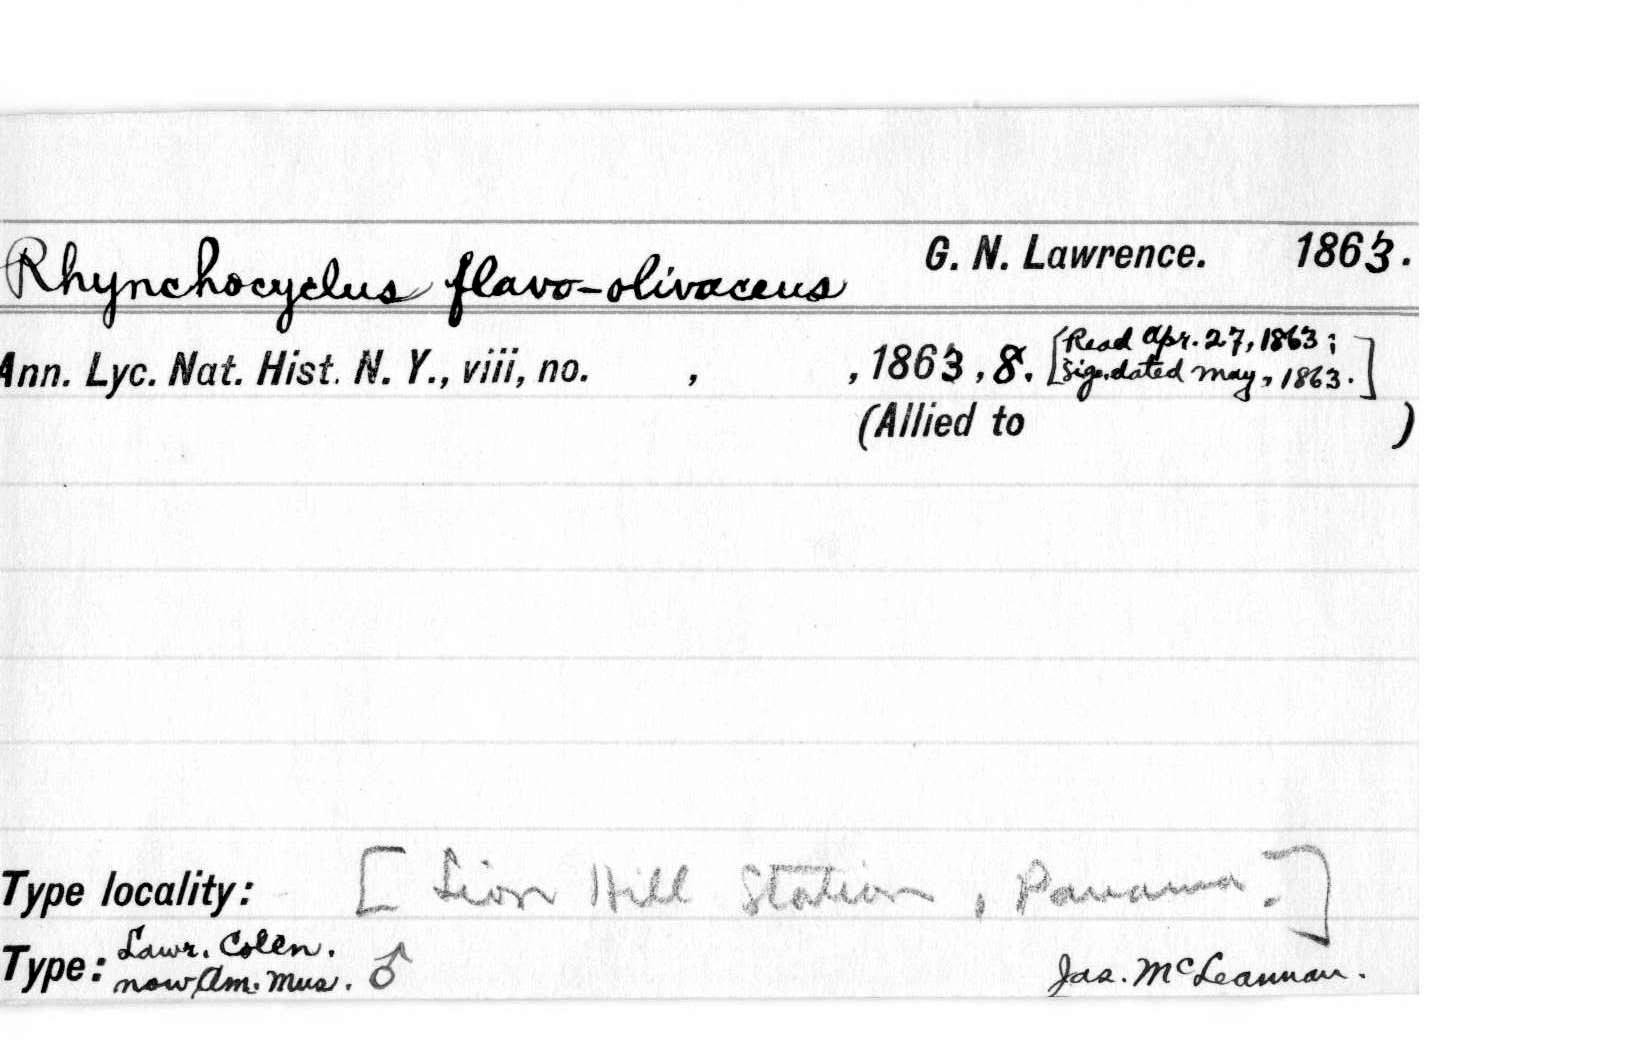 Rhynchocyclus flavo-olivaceus G. N. Lawrence. 1863.
Ann. Lyc. Nat. Hist. N. Y., viii, no. , , 1863, 8. [Read Apr. 27, 1863;
Sig. dated May, 1863.]
(Allied to )
Type locality: [Lion Hill Station, Panama.]
Type: Lawr. Colln.
now Am. Mus. ♂ Jas. McLeannan.